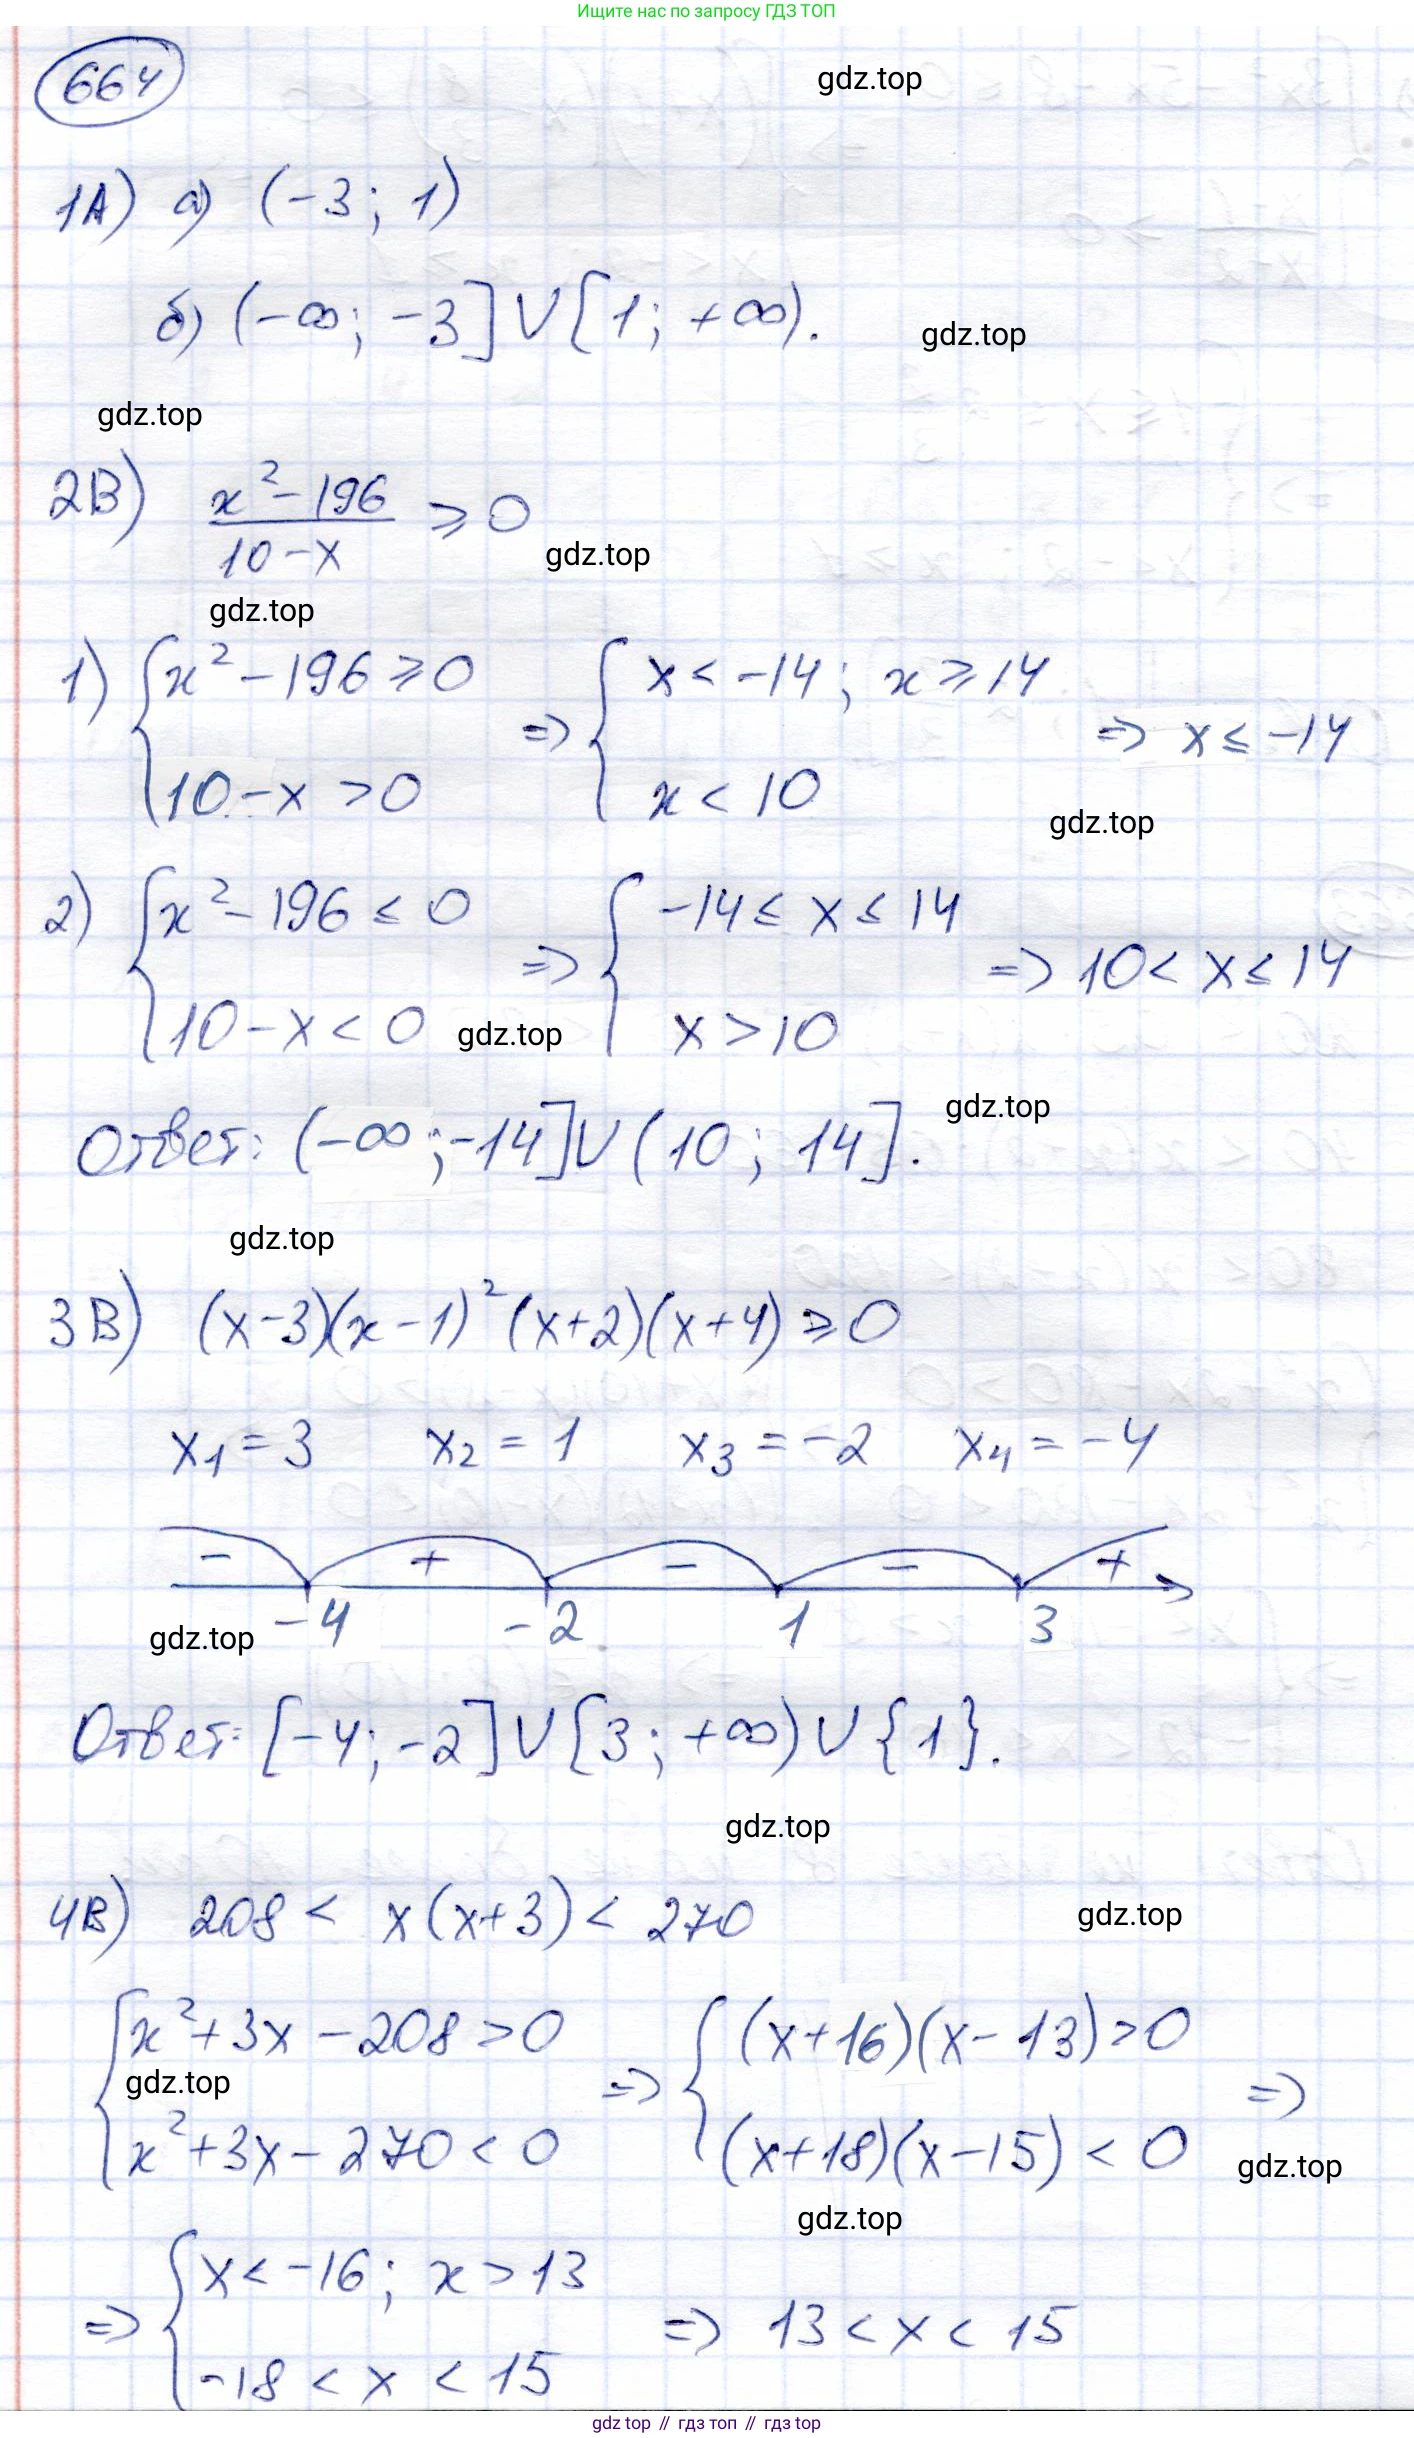 Ищите нас по запросу ГДЗ ТОП
664
gdz.top
1А) а) (-3; 1)
б) (-∞; -3] ∪ [1; +∞).
gdz.top
gdz.top
2В) (x² - 196)/(10 - x) ⩾ 0
gdz.top
gdz.top
1) { x² - 196 ⩾ 0 ; 10 - x > 0 => { x < -14; x ⩾ 14 ; x < 10 => x ≤ -14
gdz.top
2) { x² - 196 ≤ 0 ; 10 - x < 0 => { -14 ≤ x ≤ 14 ; x > 10 => 10 < x ≤ 14
gdz.top
gdz.top
Ответ: (-∞; -14] ∪ (10; 14].
gdz.top
3В) (x - 3)(x - 1)² (x + 2)(x + 4) ⩾ 0
x₁ = 3 x₂ = 1 x₃ = -2 x₄ = -4
- + - - +
-4 -2 1 3
gdz.top
Ответ: [-4; -2] ∪ [3; +∞) ∪ {1}.
gdz.top
4В) 208 < x(x + 3) < 270
gdz.top
{ x² + 3x - 208 > 0 ; x² + 3x - 270 < 0 => { (x + 16)(x - 13) > 0 ; (x + 18)(x - 15) < 0 =>
gdz.top
gdz.top
gdz.top
=> { x < -16; x > 13 ; -18 < x < 15 => 13 < x < 15
gdz top // гдз топ // гдз top